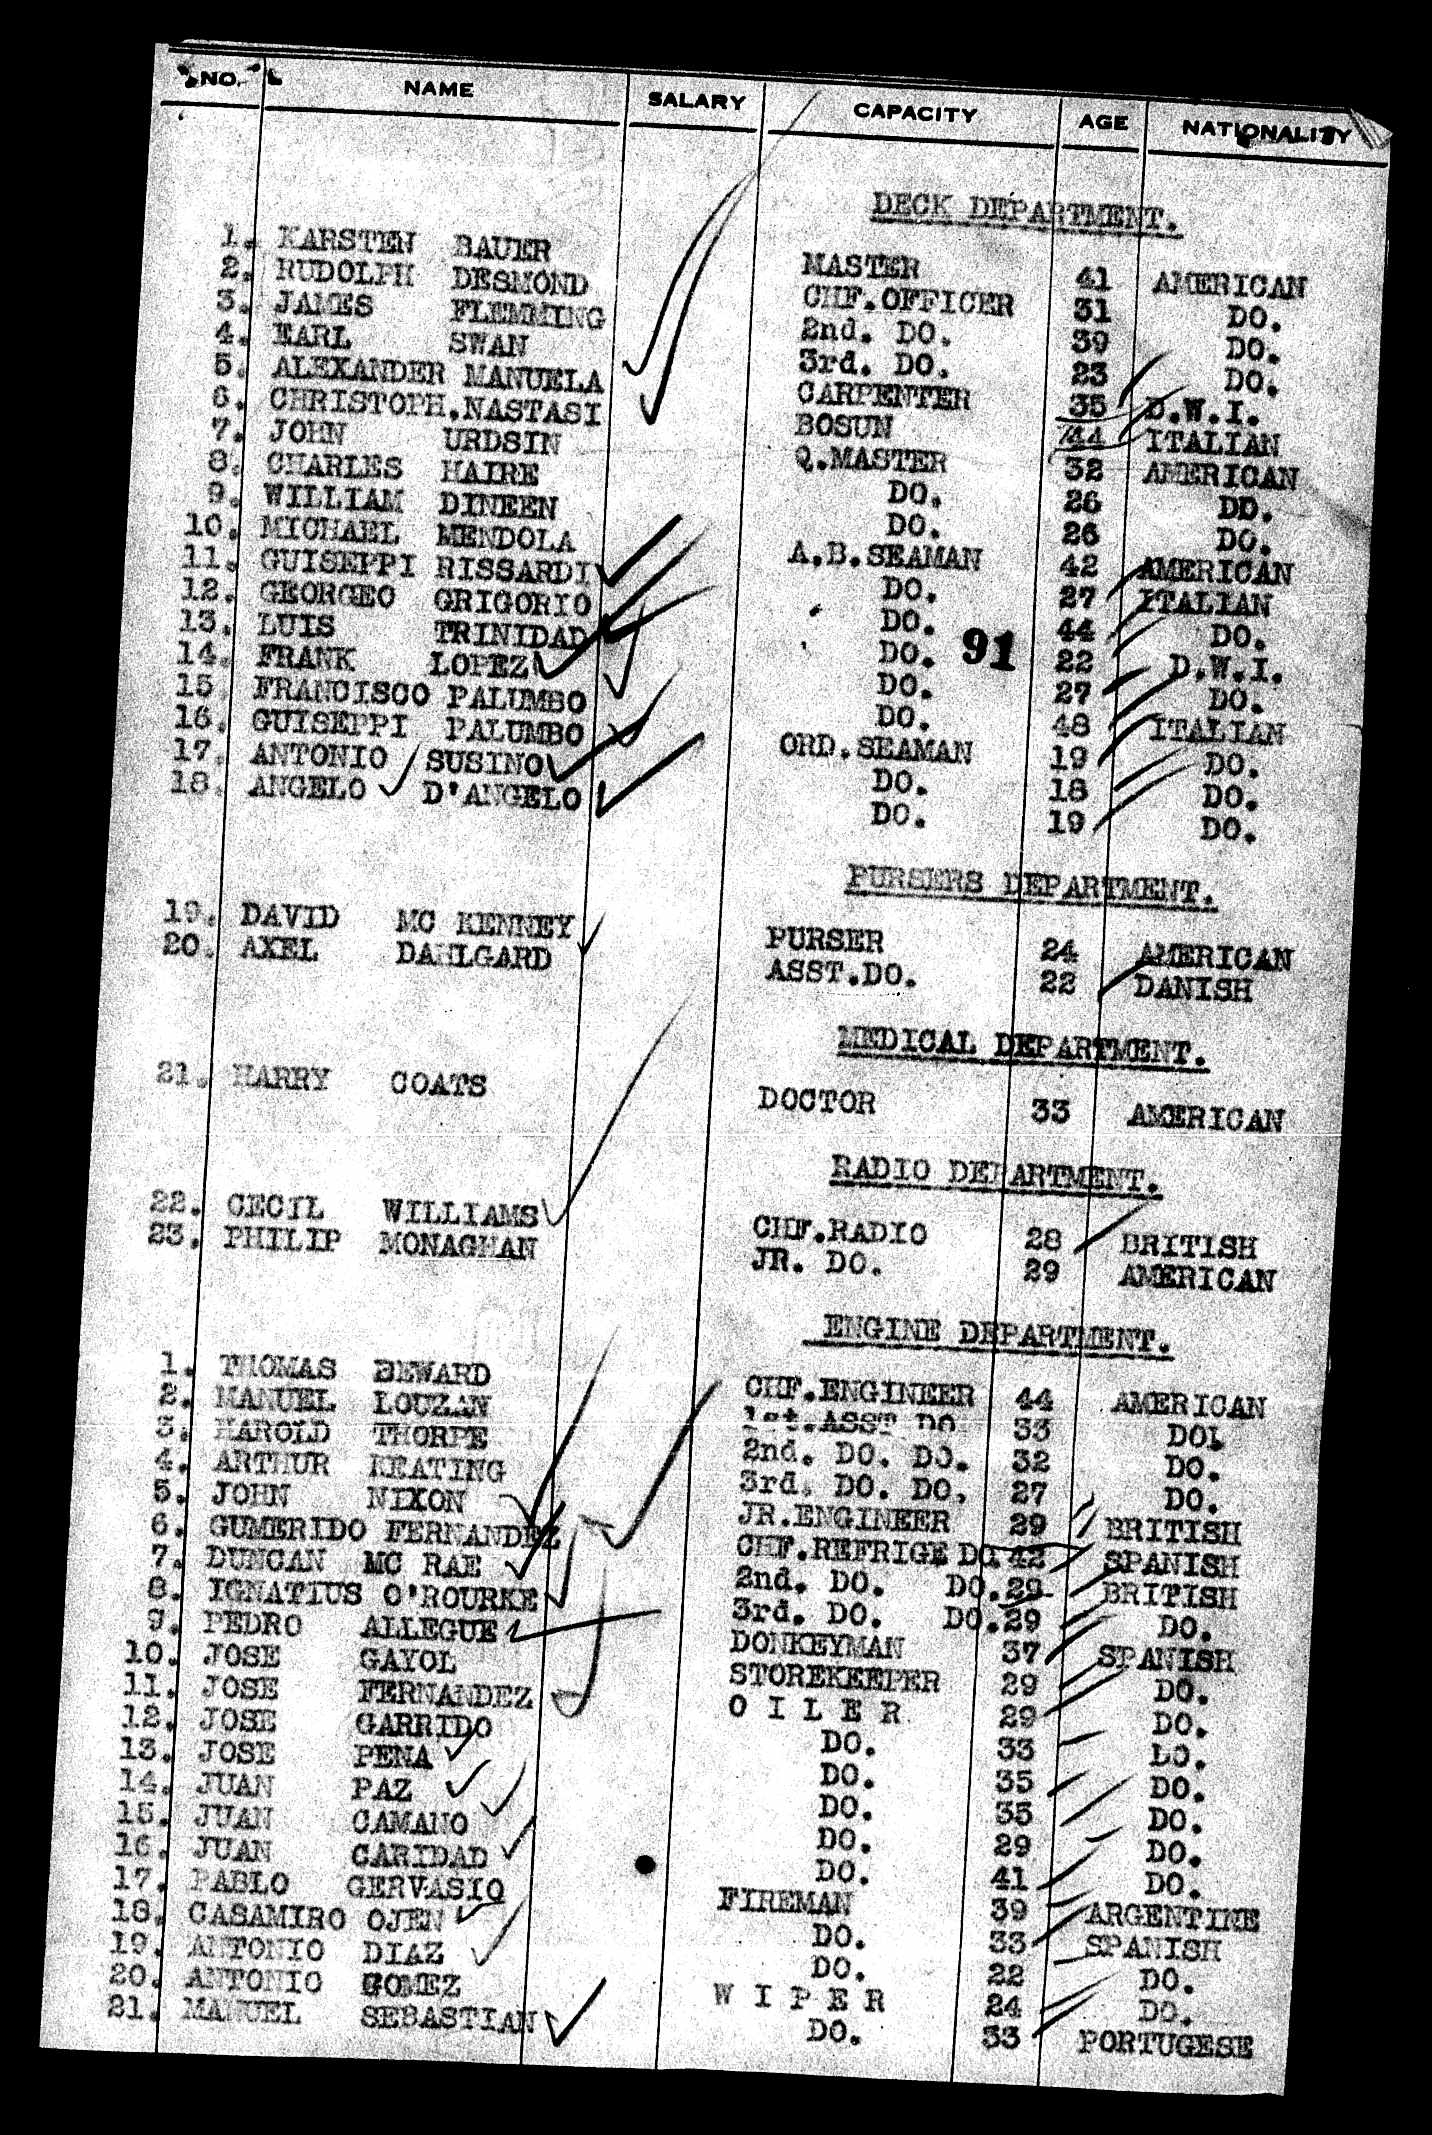 NO. NAME SALARY CAPACITY AGE NATIONALITY
DECK DEPARTMENT.
1. KARSTEN BAUER MASTER 41 AMERICAN
2. RUDOLPH DESMOND CHF.OFFICER 31 DO.
3. JAMES FLEMMING 2nd. DO. 39 DO.
4. EARL SWAN 3rd. DO. 23 DO.
5. ALEXANDER MANUELA CARPENTER 35 D.W.I.
6. CHRISTOPH.NASTASI BOSUN 44 ITALIAN
7. JOHN URDSIN Q.MASTER 32 AMERICAN
8. CHARLES HAIRE DO. 26 DO.
9. WILLIAM DINEEN DO. 26 DO.
10. MICHAEL MENDOLA A.B.SEAMAN 42 AMERICAN
11. GUISEPPI RISSARDI DO. 27 ITALIAN
12. GEORGEO GRIGORIO DO. 44 DO.
13. LUIS TRINIDAD DO. 91 22 D.W.I.
14. FRANK LOPEZ DO. 27 DO.
15 FRANCISCO PALUMBO DO. 48 ITALIAN
16. GUISEPPI PALUMBO ORD.SEAMAN 19 DO.
17. ANTONIO SUSINO DO. 18 DO.
18. ANGELO D'ANGELO DO. 19 DO.
PURSERS DEPARTMENT.
19. DAVID MC KENNEY PURSER 24 AMERICAN
20. AXEL DAHLGARD ASST.DO. 22 DANISH
MEDICAL DEPARTMENT.
21. HARRY COATS DOCTOR 33 AMERICAN
RADIO DEPARTMENT.
22. CECIL WILLIAMS CHF.RADIO 28 BRITISH
23. PHILIP MONAGHAN JR. DO. 29 AMERICAN
ENGINE DEPARTMENT.
1. THOMAS BEWARD CHF.ENGINEER 44 AMERICAN
2. MANUEL LOUZAN 1st.ASST DO 33 DO.
3. HAROLD THORPE 2nd. DO. DO. 32 DO.
4. ARTHUR KEATING 3rd. DO. DO. 27 DO.
5. JOHN NIXON JR.ENGINEER 29 BRITISH
6. GUMERIDO FERNANDEZ CHF.REFRIGE DO.42 SPANISH
7. DUNCAN MC RAE 2nd. DO. DO.29 BRITISH
8. IGNATIUS O'ROURKE 3rd. DO. DO.29 DO.
9. PEDRO ALLEGUE DONKEYMAN 37 SPANISH
10. JOSE GAYOL STOREKEEPER 29 DO.
11. JOSE FERNANDEZ O I L E R 29 DO.
12. JOSE GARRIDO DO. 33 DO.
13. JOSE PENA DO. 35 DO.
14. JUAN PAZ DO. 35 DO.
15. JUAN CAMANO DO. 29 DO.
16. JUAN CARIDAD DO. 41 DO.
17. PABLO GERVASIO FIREMAN 39 ARGENTINE
18. CASAMIRO OJEN DO. 33 SPANISH
19. ANTONIO DIAZ DO. 22 DO.
20. ANTONIO GOMEZ W I P E R 24 DO.
21. MANUEL SEBASTIAN DO. 33 PORTUGESE